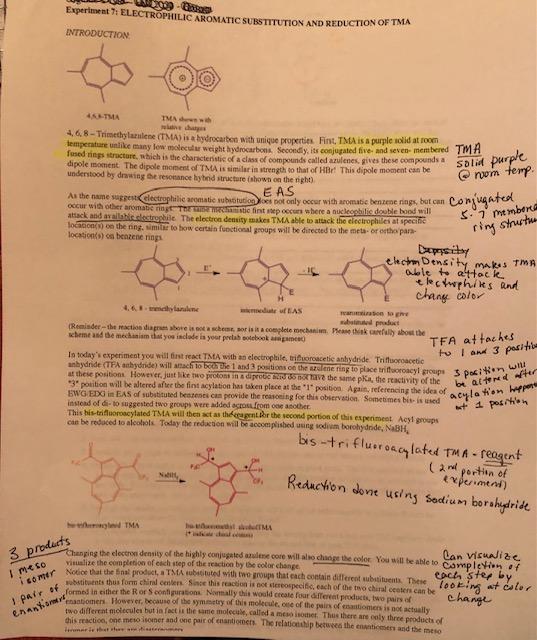 Experiment 7: ELECTROPHILIC AROMATIC SUBSTITUTION AND REDUCTION OF TMA
INTRODUCTION:
4,6,8-TMA
TMA shown with
relative charges
4, 6, 8 – Trimethylazulene (TMA) is a hydrocarbon with unique properties. First, TMA is a pure solid at room
temperature unlike many low molecular weight hydrocarbons. Secondly, its conjugated five- and seven- membered
fused rings structure, which is the characteristic of a class of compounds called azulenes, gives these compounds a
dipole moment. The dipole moment of TMA is similar in strength to that of HBr! This dipole moment can be
understood by drawing the resonance hybrid structure (shown on the right).
TMA
solid purple
@ room temp.
EAS
As the name suggests electrophilic aromatic substitution does not only occur with aromatic benzene rings, but can
occur with other aromatic rings. The same mechanistic first step occurs where a nucleophilic double bond will
attack and available electrophile. The electron density makes TMA able to attack the electrophiles at specific
location(s) on the ring, similar to how certain functional groups will be directed to the meta- or ortho/para-
location(s) on benzene rings.
Conjugated
5-7 membered
ring structure
Density
electron Density makes TMA
able to attack
electrophiles and
change color
1
E⁺
- H⁺
H
E
E
4, 6, 8 - trimethylazulene
intermediate of EAS
rearomatization to give
substituted product
(Reminder – the reaction diagram above is not a scheme, nor is it a complete mechanism. Please think carefully about the
scheme and the mechanism that you include in your prelab notebook assignment)
TFA attaches
to 1 and 3 positions
In today's experiment you will first react TMA with an electrophile, trifluoroacetic anhydride. Trifluoroacetic
anhydride (TFA anhydride) will attach to both the 1 and 3 positions on the azulene ring to place trifluoroacyl groups
at these positions. However, just like two protons in a diprotic acid do not have the same pKa, the reactivity of the
"3" position will be altered after the first acylation has taken place at the "1" position. Again, referencing the idea of
EWG/EDG in EAS of substituted benzenes can provide the reasoning for this observation. Sometimes bis- is used
instead of di- to suggested two groups were added across from one another.
This bis-trifluoroacylated TMA will then act as the reagent for the second portion of this experiment. Acyl groups
can be reduced to alcohols. Today the reduction will be accomplished using sodium borohydride, NaBH₄
3 position will
be altered after
acylation happens
at 1 position
bis-trifluoroacylated TMA - reagent
(2nd portion of
experiment)
Reduction done using Sodium borohydride
NaBH₄
bis-trifluoroacylated TMA
bis-trifluoromethyl alcohol TMA
(* indicate chiral centers)
3 products
1 meso
isomer
1 pair of
enantiomers
Changing the electron density of the highly conjugated azulene core will also change the color. You will be able to
visualize the completion of each step of the reaction by the color change.
Notice that the final product, a TMA substituted with two groups that each contain different substituents. These
substituents thus form chiral centers. Since this reaction is not stereospecific, each of the two chiral centers can be
formed in either the R or S configurations. Normally this would create four different products, two pairs of
enantiomers. However, because of the symmetry of this molecule, one of the pairs of enantiomers is not actually
two different molecules but in fact is the same molecule, called a meso isomer. Thus there are only three products of
this reaction, one meso isomer and one pair of enantiomers. The relationship between the enantiomers and the meso
isomer is that they are diastereomers
Can visualize
completion of
each step by
looking at color
change